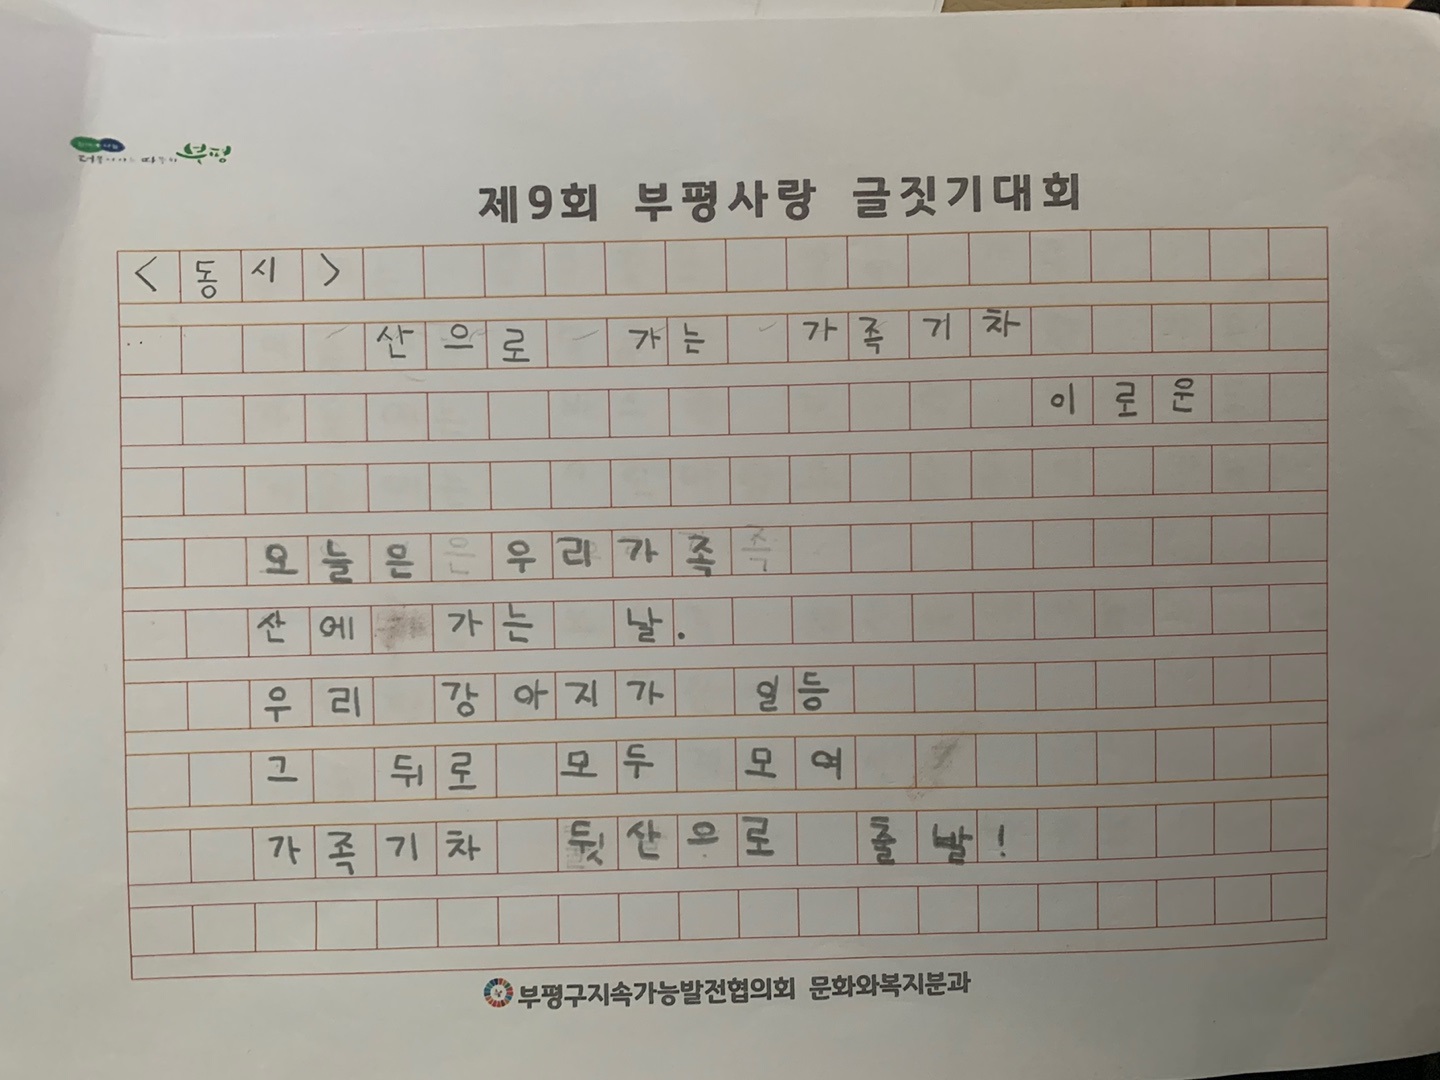 부평
제9회 부평사랑 글짓기대회
<동시>
산으로 가는 가족기차
이로운
오늘은 우리가족
산에 가는 날.
우리 강아지가 일등
그 뒤로 모두 모여
가족기차 뒷산으로 출발!
부평구지속가능발전협의회 문화와복지분과